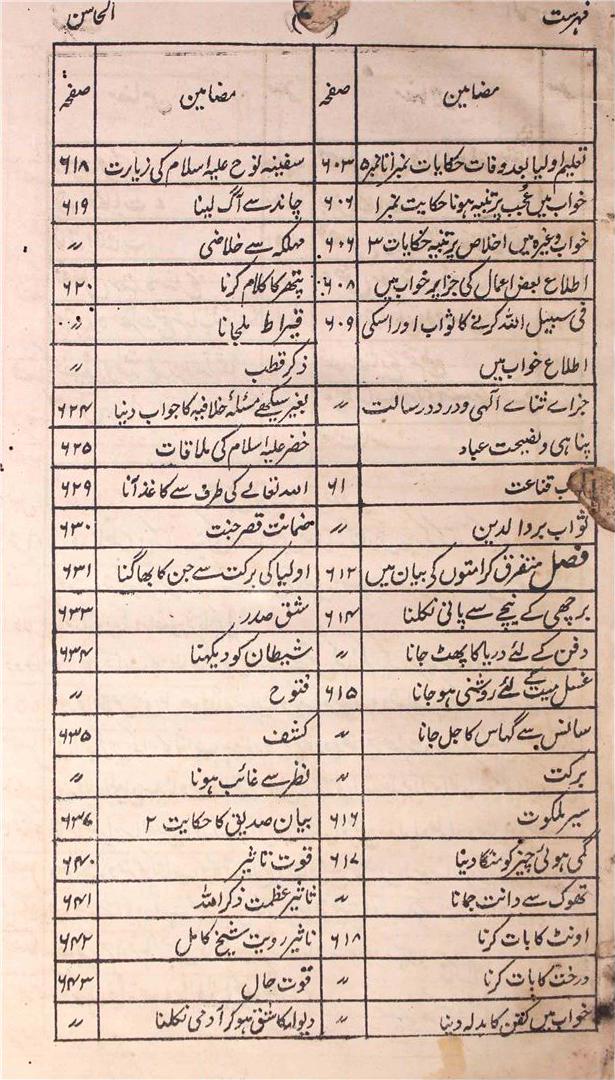 فہرست
المحاسن
مضامین صفحہ
تعلیم اولیا بعد وفات حکایات نمبر ۱ تا نمبر ۵ ۶۰۳
خواب میں عُجب پر تنبیہ ہونا حکایت نمبر ۱ ۶۰۶
خواب وغیرہ میں اخلاص پر تنبیہ حکایات ۳ ۶۰۶
اطلاع بعض اعمال کی جزا پر خواب میں ۶۰۸
فی سبیل اللہ کرنے کا ثواب اور اسکی ۶۰۹
اطلاع خواب میں
جزاے ثناے الٰہی و درد در رسالت 〃
پناہی و نصیحت عباد
قناعت ۶۱
ثواب بر والدین 〃
فصل متفرق کرامتوں کی بیان میں ۶۱۲
برچھی کے نیچے سے پانی نکلنا ۶۱۴
دفن کے لئے دریا کا پھٹ جانا 〃
غسل میت کے لئے روشنی ہو جانا ۶۱۵
سانس سے گہاس کا جل جانا 〃
برکت 〃
سیر ملکوت ۶۱۶
گمی ہوئی چیز کو منگا دینا ۶۱۷
تھوک سے دانت جمانا 〃
اونٹ کا بات کرنا ۶۱۸
درخت کا بات کرنا 〃
خواب میں کفن کا بدلہ دینا 〃
مضامین صفحہ
سفینہ نوح علیہ اسلام کی زیارت ۶۱۸
چاند سے آگ لینا ۶۱۹
مہلکہ سے خلاصی 〃
پتھر کا کلام کرنا ۶۲۰
قیراط ملجانا 〃
ذکر قطب 〃
بغیر سیکھے مسئلہ خلافیہ کا جواب دینا ۶۲۴
خضر علیہ اسلام کی ملاقات ۶۲۵
اللہ تعالے کی طرف سے کاغذ آنا ۶۲۹
ضمانت قصر جنت ۶۳۰
اولیا کی برکت سے جن کا بھاگنا ۶۳۱
شق صدر ۶۳۳
شیطان کو دیکھنا ۶۳۴
فتوح 〃
کشف ۶۳۵
نظر سے غائب ہونا 〃
بیان صدیق کا حکایت ۲ ۶۳۶
قوت تاثیر ۶۴۰
تاثیر عظمت ذکر اللہ ۶۴۱
تاثیر رویت شیخ کامل ۶۴۲
قوت حال ۶۴۳
دیوار کا شق ہو کر آدمی نکلنا 〃